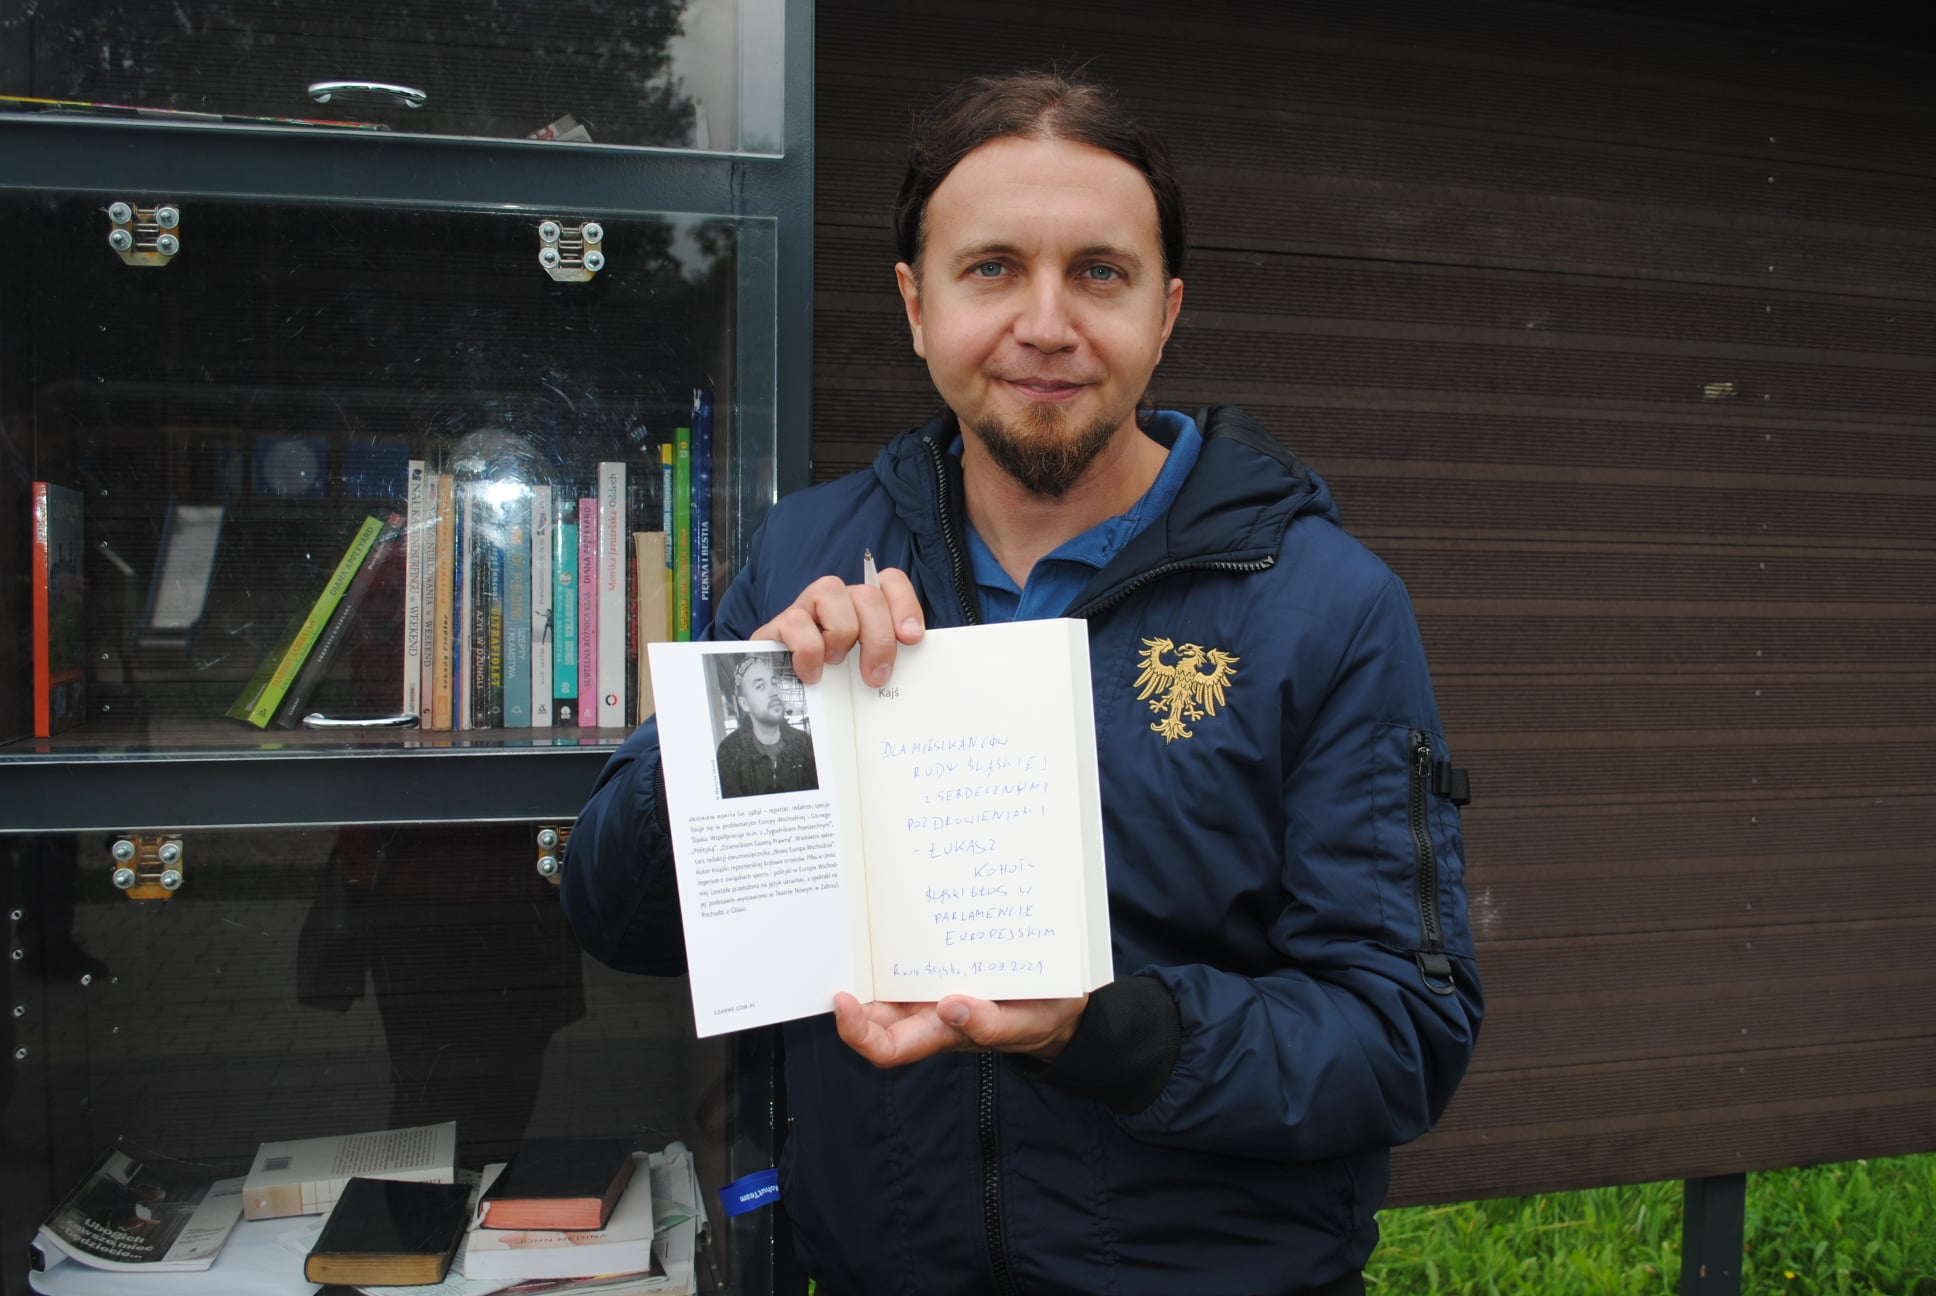 DIANA APPLEYARD
NA
WEEKEND
WEEKEND
Arkady Fiedler
AZYL W DŻUNGLI
ULTRAFIOLET
SZEPTY
I KŁAMSTWA
SUBTELNA RÓŻNICA KLAS DIANA APPLEYARD
Monika Jaruzelska Oddech
PIĘKNA I BESTIA
Kajś
DLA MIESZKAŃCÓW
RUDY ŚLĄSKIEJ
Z SERDECZNYMI
POZDROWIENIAMI
- ŁUKASZ
KOHUT -
ŚLĄSKI GŁOS W
PARLAMENCIE
EUROPEJSKIM
Ruda Śląska, 18.09.2021
ZBIGNIEW ROKITA (ur. 1989) — reporter, redaktor, specja-
lizuje się w problematyce Europy Wschodniej i Górnego
Śląska. Współpracuje m.in. z „Tygodnikiem Powszechnym",
„Polityką", „Dziennikiem Gazetą Prawną". Wieloletni sekre-
tarz redakcji dwumiesięcznika „Nowa Europa Wschodnia".
Autor książki reporterskiej Królowie strzelców. Piłka w cieniu
imperium o związkach sportu i polityki w Europie Wschod-
niej (została przełożona na język ukraiński, a spektakl na
jej podstawie wystawiono w Teatrze Nowym w Zabrzu).
Pochodzi z Gliwic.
CZARNE.COM.PL
KohutTeam
Ubogich
zawsze mieć
będziecie...
JOHN MEDINA